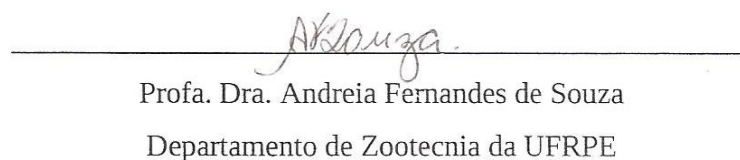 AFSouza.
Profa. Dra. Andreia Fernandes de Souza
Departamento de Zootecnia da UFRPE